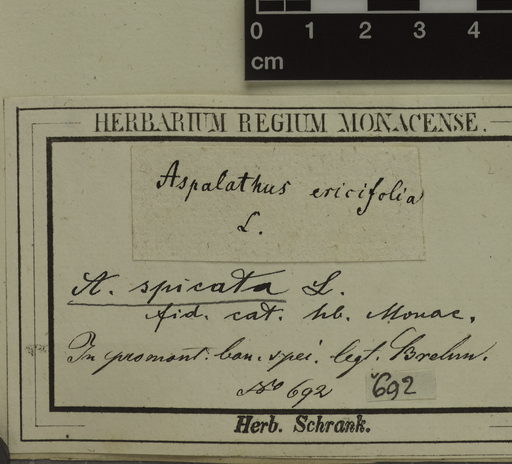 0 1 2 3 4
cm
HERBARIUM REGIUM MONACENSE.
Aspalathus ericifolia
L.
A. spicata L.
fid. cat. hb. Monac.
In promont. bon. spei. legt. Brehm.
No 692 692
Herb. Schrank.